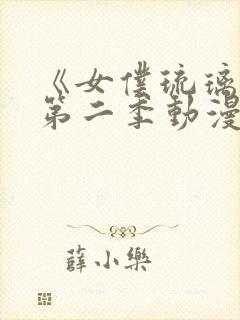 《女僕琉璃
第二季動漫
薛小樂